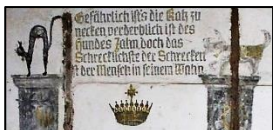 Gefährlich ist's die Katz zu
necken verderblich ist des
Hundes Zahn doch das
Schrecklichste der Schrecken
ist der Mensch in seinem Wahn